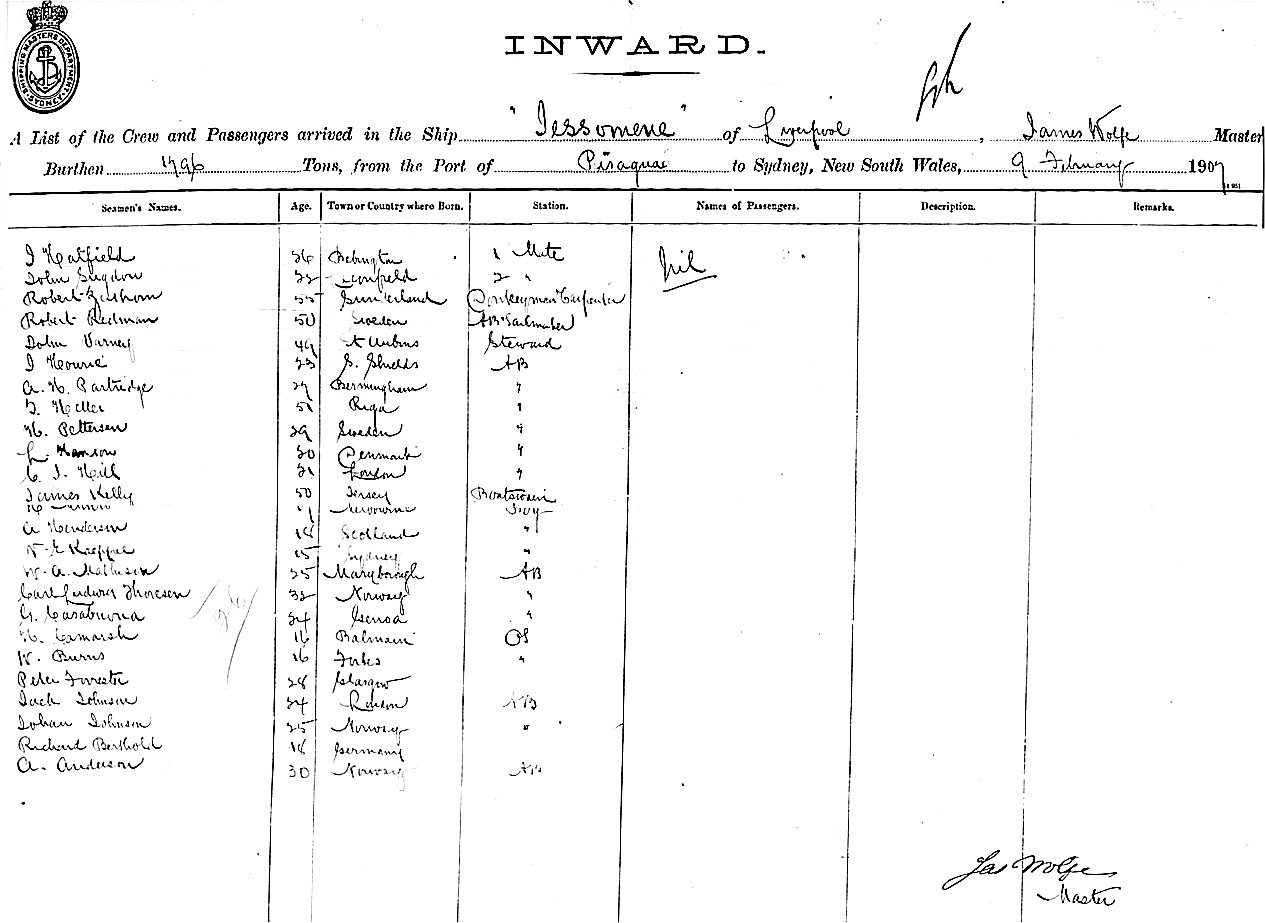 SHIPPING MASTERS DEPARTMENT SYDNEY
INWARD.
A List of the Crew and Passengers arrived in the Ship "Jessomene" of Liverpool, James Wolfe Master
Burthen 1796 Tons, from the Port of Pisagua to Sydney, New South Wales, 9 February 1907
Seamen's Names. Age. Town or Country where Born. Station. Names of Passengers. Description. Remarks.
J Hatfield 26 Bebington 1 Mate Nil
John Sugdon 22 2 "
Robert 55 Sunderland Donkeyman Carpenter
Robert Redman 50 Sweden AB Sailmaker
John Varney 49 St Aubins Steward
J Hourie 23 S. Shields AB
A. H. Partridge 27 Bermingham "
Heller 51 Riga "
H. Pettersen 29 Sweden "
L. Hanson 30 Denmark "
C. J. Hill 21 London "
James Kelly 50 Jersey Boatswain
Melbourne Boy
A Henderson 18 Scotland "
15 Sydney "
W. A. Mathison 25 Maryborough AB
Carl Ludwig Thoresen 32 Norway "
G. Casabuona 24 Genoa "
H. Camarsh 16 Balmain OS
W. Burns 16 Forbes "
Peter Forrester 28 Glasgow
Jack Johnson 24 London AB
Johan Johnson 25 Norway "
Richard Berthold 18 Germany
A. Anderson 30 Norway AB
Jas Wolfe
Master